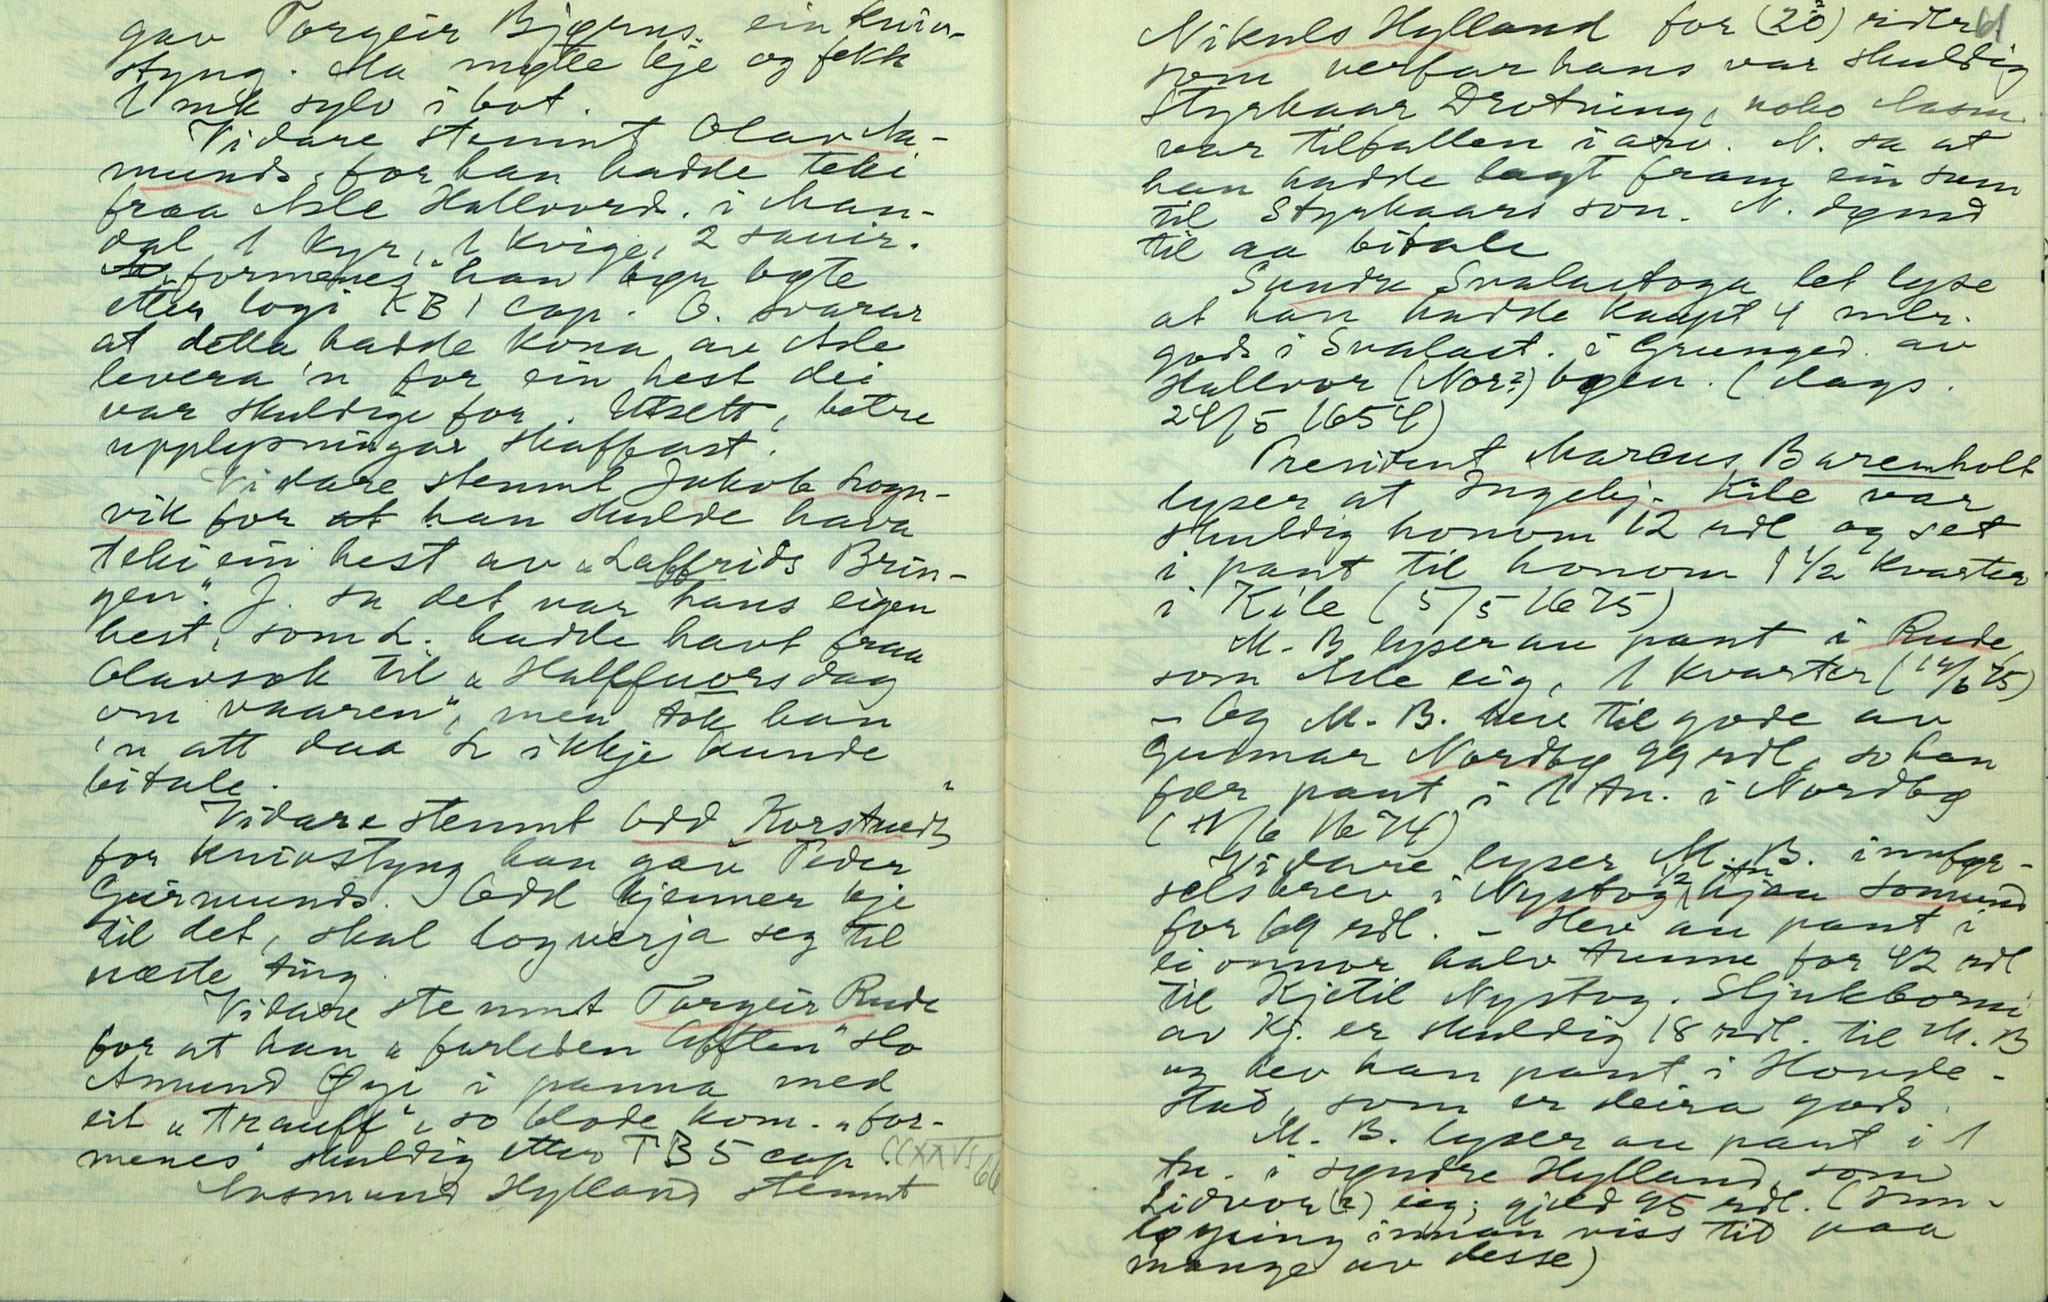 gav Torgeir Bjørns. ein kniv-
styng. Aa møtte ikje og fekk
1 mk sylv i bot.
Vidare stemnt Olav Aa-
munds. for han hadde teki
fraa Asle Hallvords. i Man-
dal 1 kyr, 1 kvige, 2 sauir.
"formenes" han bør bøte
etter logi KB 1 cap. O. svarar
at detta hadde kona av Asle
levera 'n for ein hest dei
var skuldige for. Utsett, betre
upplysningar skaffast.
Vidare stemnt Jakob Logn-
vik for at han skulde hava
teki ein hest av "Laffrids Brin-
gen". J. sa det var hans eigen
hest, som L. hadde havt fraa
Olavsok til "Halffuorsdag
om vaaren", men tok han
'n att daa L ikkje kunde
bitale.
Vidare stemnt Odd Korstueds
for knivstyng han gav Peder
Geirmunds. Odd kjenner ikje
til det, skal logverja seg til
næste ting.
Vidare stemnt Torgeir Rude
for at han "farleden Afften" slo
Amund Øyi i panna med
eit "trauff", so blode kom. "for-
menes" skuldig etter TB 5 cap.
Aasmund Hylland stemnt
66
61
Nikuls Hylland for (20?) ridlr
som verfar hans var skuldig
Styrkaar Drotning, noko Aasm
var tilfallen i arv. N. sa at
han hadde lagt fram ein sum
til Styrkaars son. N. dømd
til aa bitale
Sundre Svalastoga let lyse
at han hadde kaupt 4 mlr.
gods i Svalast. i Grunged. av
Hallvor (Nor?) bøen. (dags.
24/5 1654)
President Marcus Barenholt
lyser at Ingebj. Kile var
skuldig honom 12 rdl og set
i pant til honom 1 1/2 kvarter
i Kile (5/5 1675)
M. B lyser au pant i Rude,
som Asle eig, 1 kvarter (14/6 75)
- Og M. B. hev til gode av
Gutmar Nordbø 99 rdl, so han
fær pant i 1 tn. i Nordbø
(11/6 1674)
Vidare lyser M. B. innfør-
selsbrev i Nystog 1/2 tn hjaa Somund
for 69 rdl. - Hev au pant i
ei onnor halv tunne for 42 rdl
til Kjetil Nystog. Stjukborni
av Kj. er skuldig 18 rdl. til M. B
og hev han pant i Hovde-
stad, som er deira gods.
M. B. lyser au pant i 1
tn. i syndre Hylland, som
Lidvor (?) eig; gjeld 95 rdl. (Inn-
løysing innan viss tid paa
mange av desse)